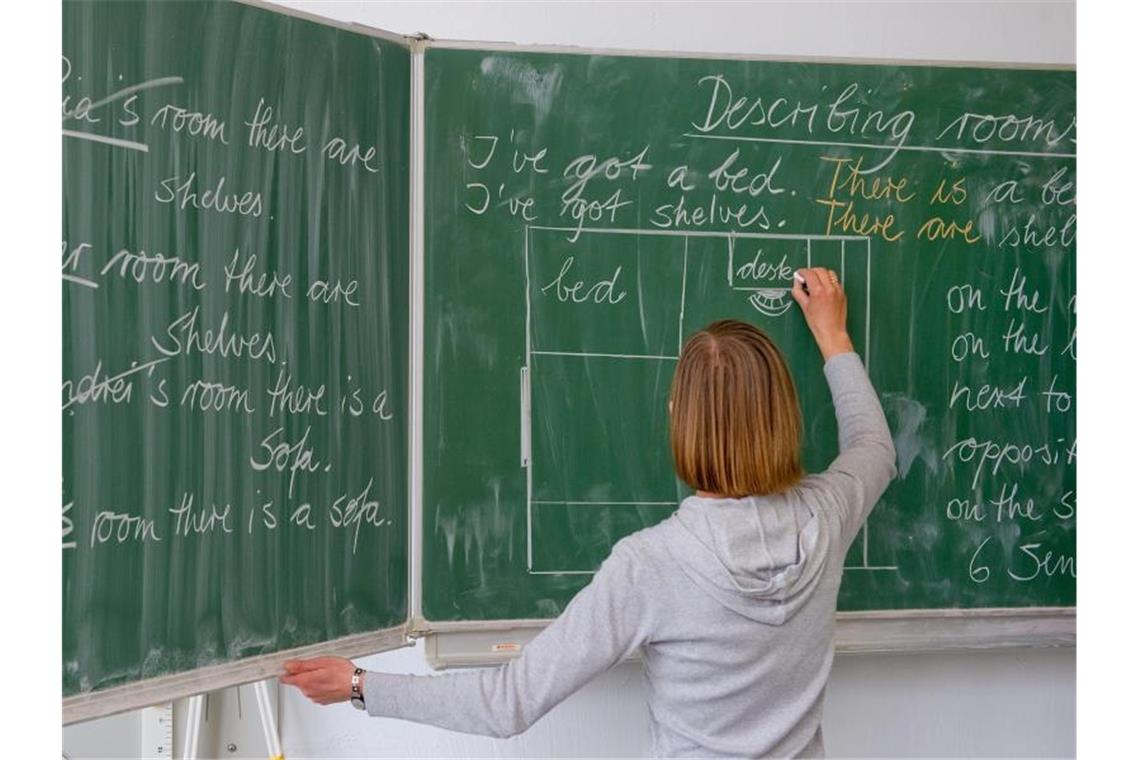 ia's room there are
shelves.
room there are
Shelves.
ndrei's room there is a
Sofa.
room there is a sofa.
Describing rooms
I've got a bed. There is a be
I've got shelves. There are shel
bed
desk
on the
on the
next to
opposit
on the s
6 Sen